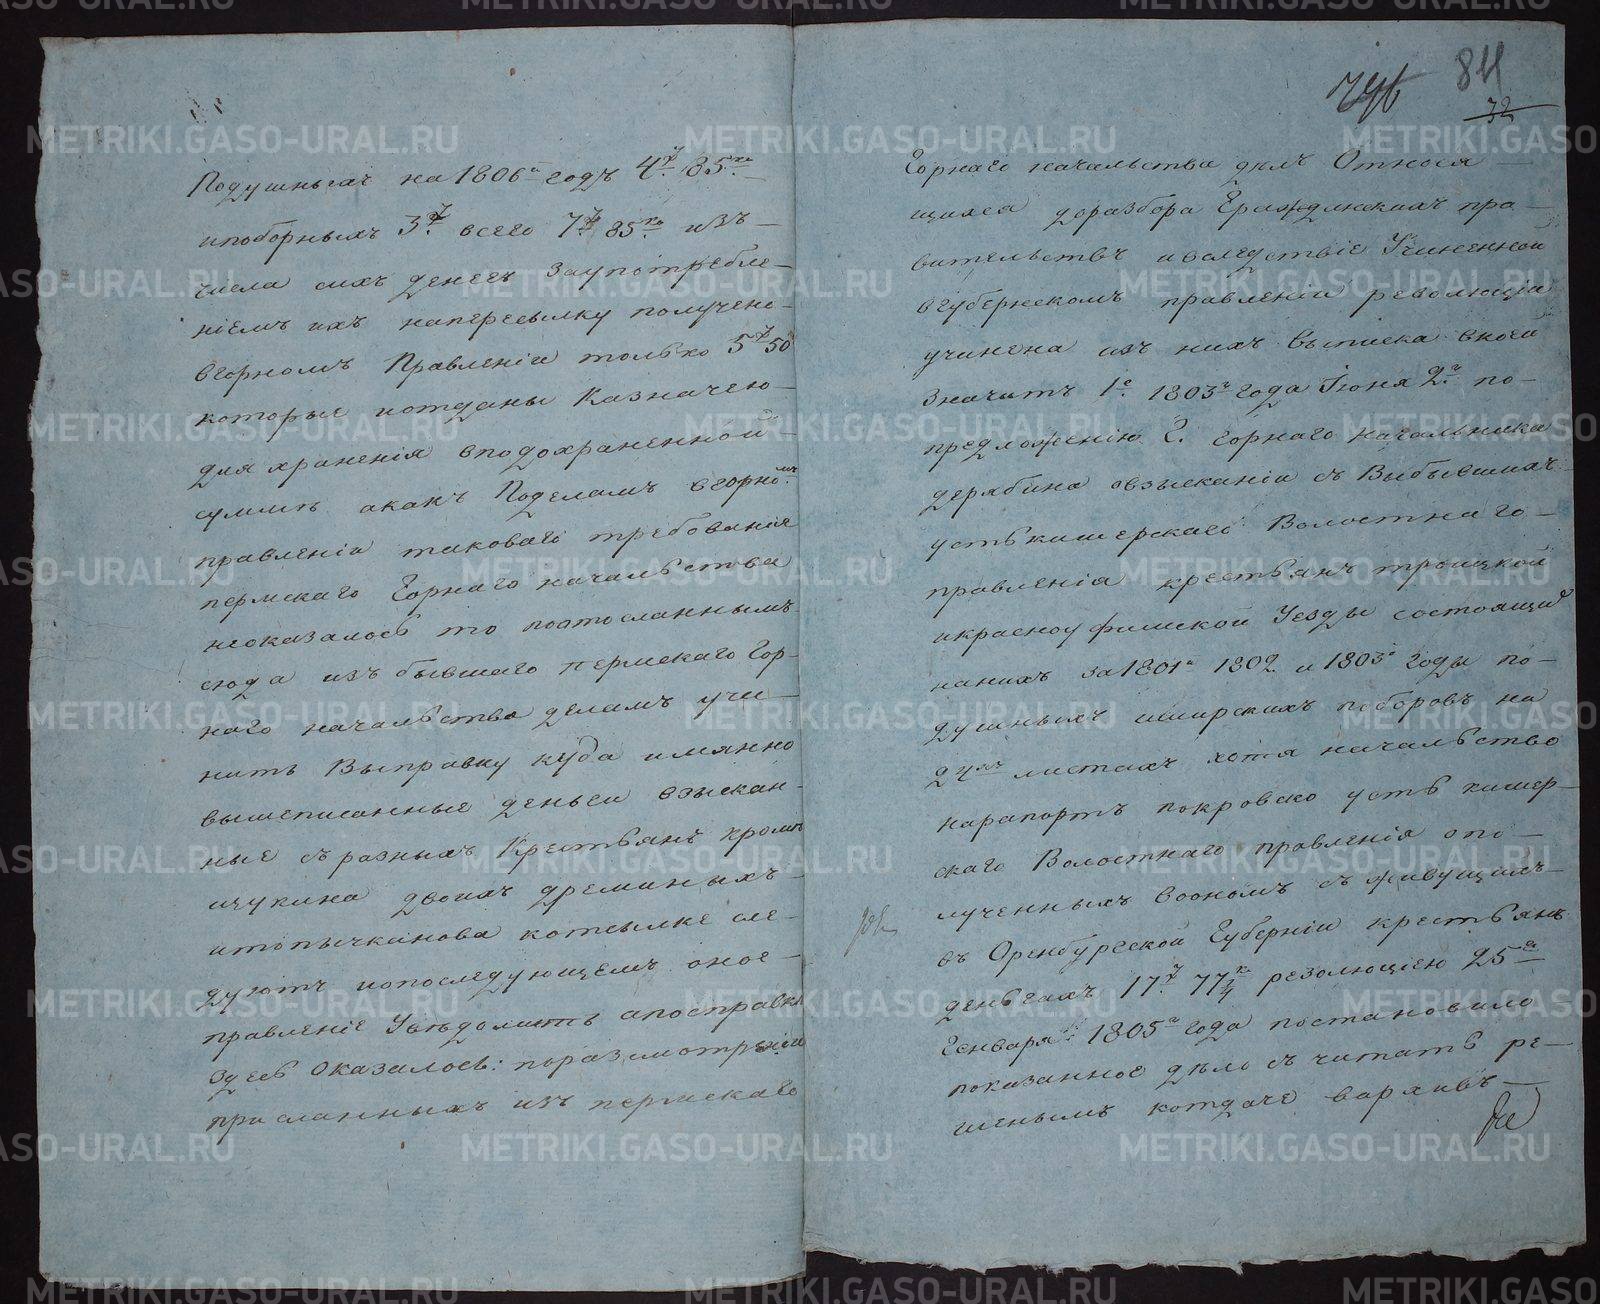 Подушныхъ на 1806й годъ 4р 85ко
ипоборныхъ 3р всего 7р 85ко изъ
числа сихъ денегъ Заупотребле-
нiемъ ихъ напересылку получено
вгорномъ Правленiи только 5р 50
которые иотданы Казначею
для храненiя вподохраненной
суммѣ акакъ Поделамъ вгорномъ
правленiи таковаго требованiя
пермскаго Горнаго начальства
неоказалось то поотосланнымъ
сюда изъ бывшаго пермскаго Гор-
наго начальства деламъ учи-
нить Выправку куда имянно
вышеписанные деньги взыскан-
ные съ разныхъ Крестьянъ кромѣ
щукина двоихъ дреминыхъ
итопычканова котсылке сле-
дуютъ ипоследующемъ оное
правленiе Увѣдомить апосправке
здесь Оказалось: поразсмотрѣнiи
присланныхъ изъ пермскаго
84
72
Горнаго начальства дѣлъ Относя-
щихся доразбора Гражданскихъ пра-
вительствъ ивследствiе Учиненной
вгубернскомъ правленiи революцiи
учинена изъ нихъ выписка вкоей
Значитъ 1е 1803го года Iюня 2го по
предложенiю Г. горнаго начальника
дерябина овзысканiи съ Выбывшихъ
устькишерскаго Волостнаго
правленiя крестьянъ троицкой
икрасноуфимской Уезды состоящие
нанихъ за 1801й 1802 и 1803й Годы по-
душныхъ имирскихъ поборовъ на
24хъ листахъ хотя начальство
нарапортъ покровско усть кишер-
скаго Волостнаго правленiя опо-
лученныхъ воономъ съ живущихъ
въ Оренбургской Губернiи крестьянъ
деньгахъ 17р 77 1/4к резолюцiею 25го
Генваря 1805го года постановило
показанное дѣло съчитать ре-
шенымъ котдаче вархивъ